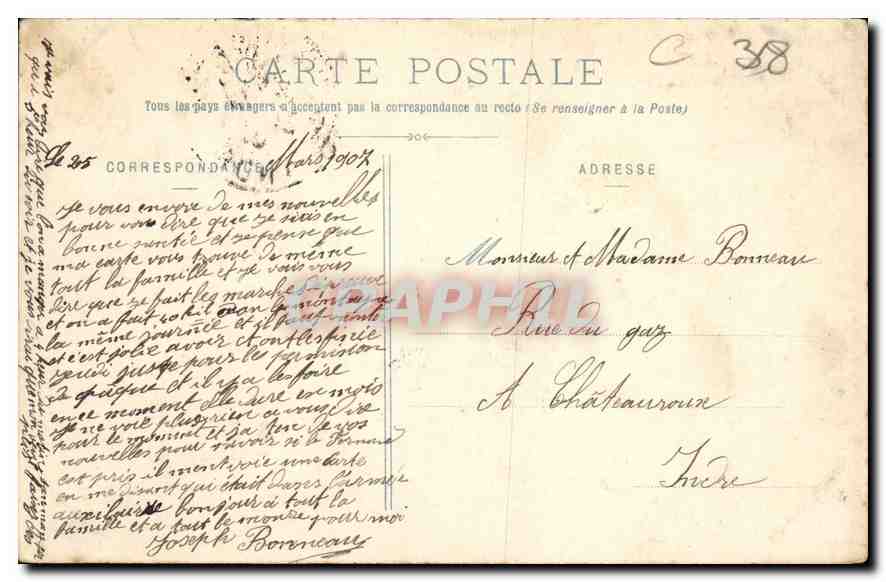 C 38
CARTE POSTALE
Tous les pays étrangers n'acceptent pas la correspondance au recto (Se renseigner à la Poste)
CORRESPONDANCE
ADRESSE
Le 25 Mars 1907
Je vous envoie de mes nouvelles
pour vous dire que je suis en
bonne santié et je pense que
ma carte vous trouve de même
tout la famille et je vais vous
dire que je fait les marche
et on a fait 40 kil montagne
la même journée et il faut
et c'est jolie a voir et ont les finie
jeudi juste pour les permission
de pâque et il y a les foire
en ce moment elle dure en mois
Je ne voie plus rien a vous dire
pour le moment et j'a ten de vos
nouvelles pour savoir si le Fernand
est pris il m'envoie une Carte
en me disant qui était dans l'armée
auxiliaire bonjour a tout la
famille et a tout le monde pour moi
Joseph Bonneau
Monsieur et Madame Bonneau
Rue du gaz
A Châteauroux
Indre
CRAPHIL